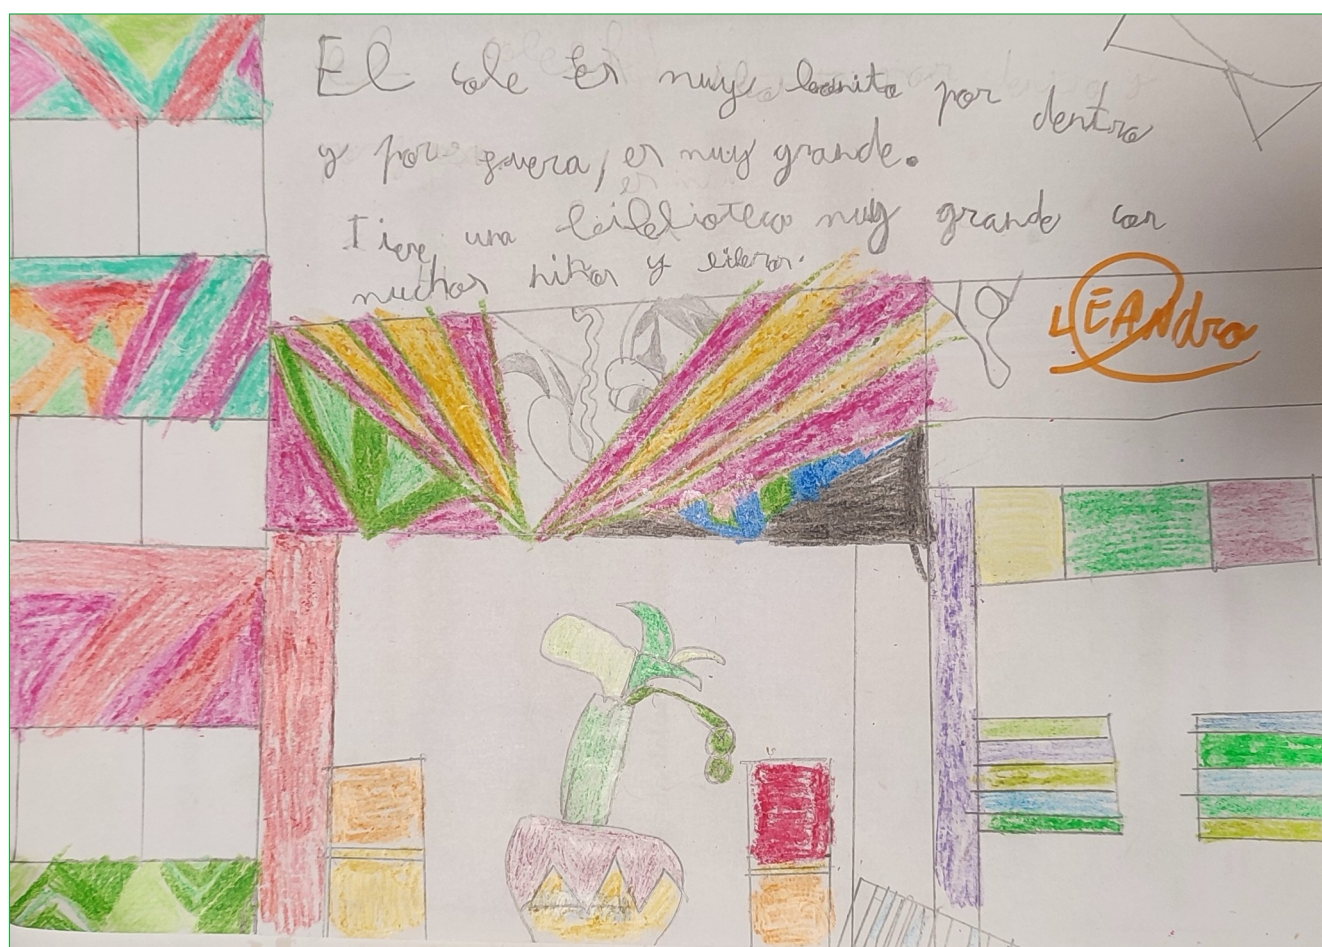 El cole Es muy bonito por dentro
y por fuera, es muy grande.
Tiene una biblioteca muy grande con
muchos niños y
LEANdro